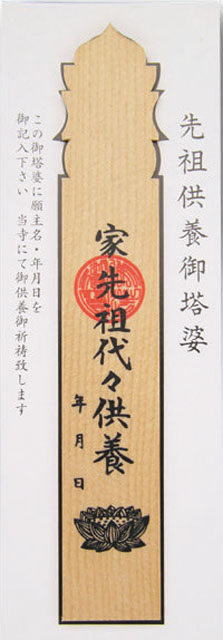 先祖供養御塔婆
家先祖代々供養
年月日
この御塔婆に願主名・年月日を
御記入下さい 当寺にて御供養御祈祷致します